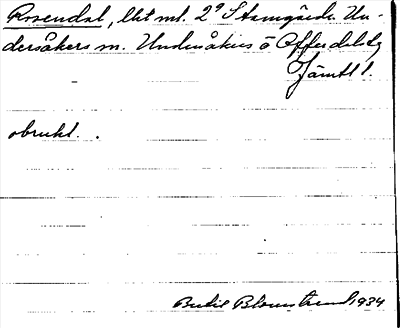 Rosendal, lht nl. 2° Stamgärde Un-
dersåkers sn. Undersåkers o Offerdals tg
Jämtl l.
obrukl. .
Bertil Blomstrand 1934